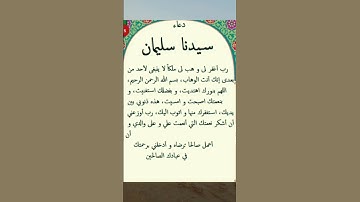 دعاء
سيدنا سليمان
رب اغفر لى و هب لى ملكاً لا ينبغى لأحد من
بعدى إنك أنت الوهاب، بسم الله الرحمن الرحيم،
اللهم بنورك اهتديت، و بفضلك استغنيت، و
بنعمتك اصبحت و امسيت، هذه ذنوبي بين
يديك، استغفرك منها و اتوب اليك، رب أوزعني
أن أشكر نعمتك التي أنعمت علي و على والدي و
أن
أعمل صالحا ترضاه و أدخلني برحمتك
في عبادك الصالحين